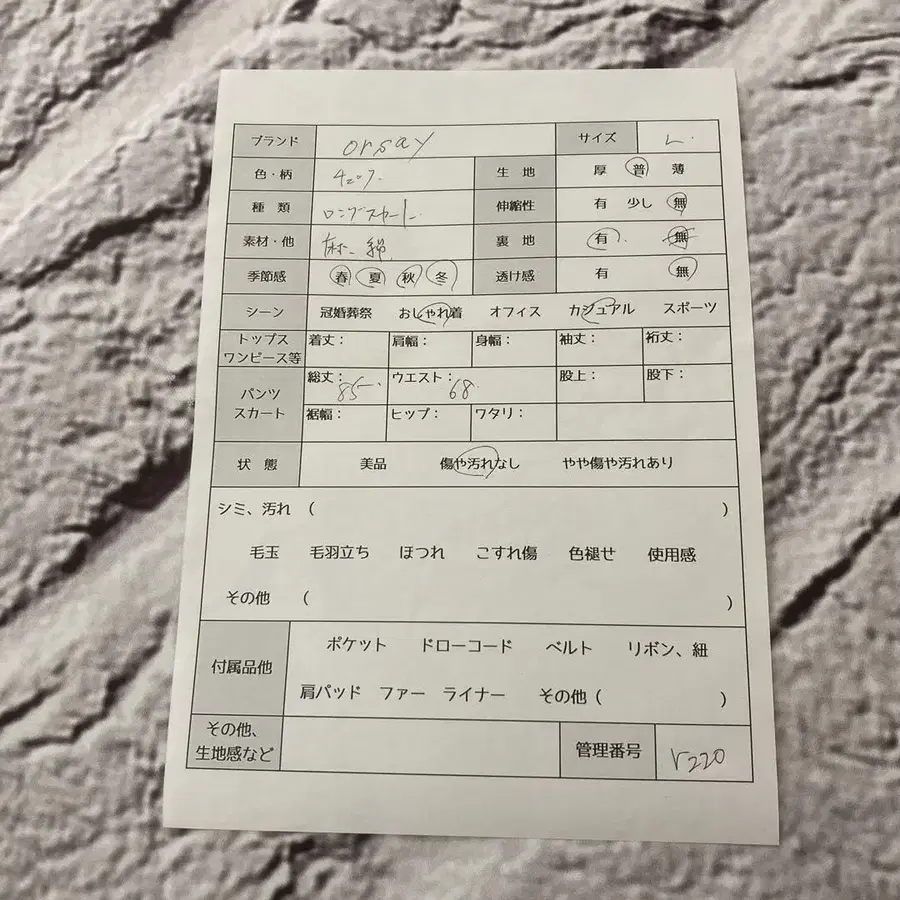 ブランド orsay サイズ L.
色・柄 生 地 厚 普 薄
種 類 ロングスカート. 伸縮性 有 少し 無
素材・他 麻、綿 裏 地 有 . 無
季節感 春 夏 秋 冬 透け感 有 無
シーン 冠婚葬祭 おしゃれ着 オフィス カジュアル スポーツ
トップス
ワンピース等 着丈： 肩幅： 身幅： 袖丈： 裄丈：
パンツ
スカート 総丈：85 ウエスト：68 股上： 股下：
裾幅： ヒップ： ワタリ：
状 態 美品 傷や汚れなし やや傷や汚れあり
シミ、汚れ （ ）
毛玉 毛羽立ち ほつれ こすれ傷 色褪せ 使用感
その他 （ ）
付属品他 ポケット ドローコード ベルト リボン、紐
肩パッド ファー ライナー その他（ ）
その他、
生地感など 管理番号 r220